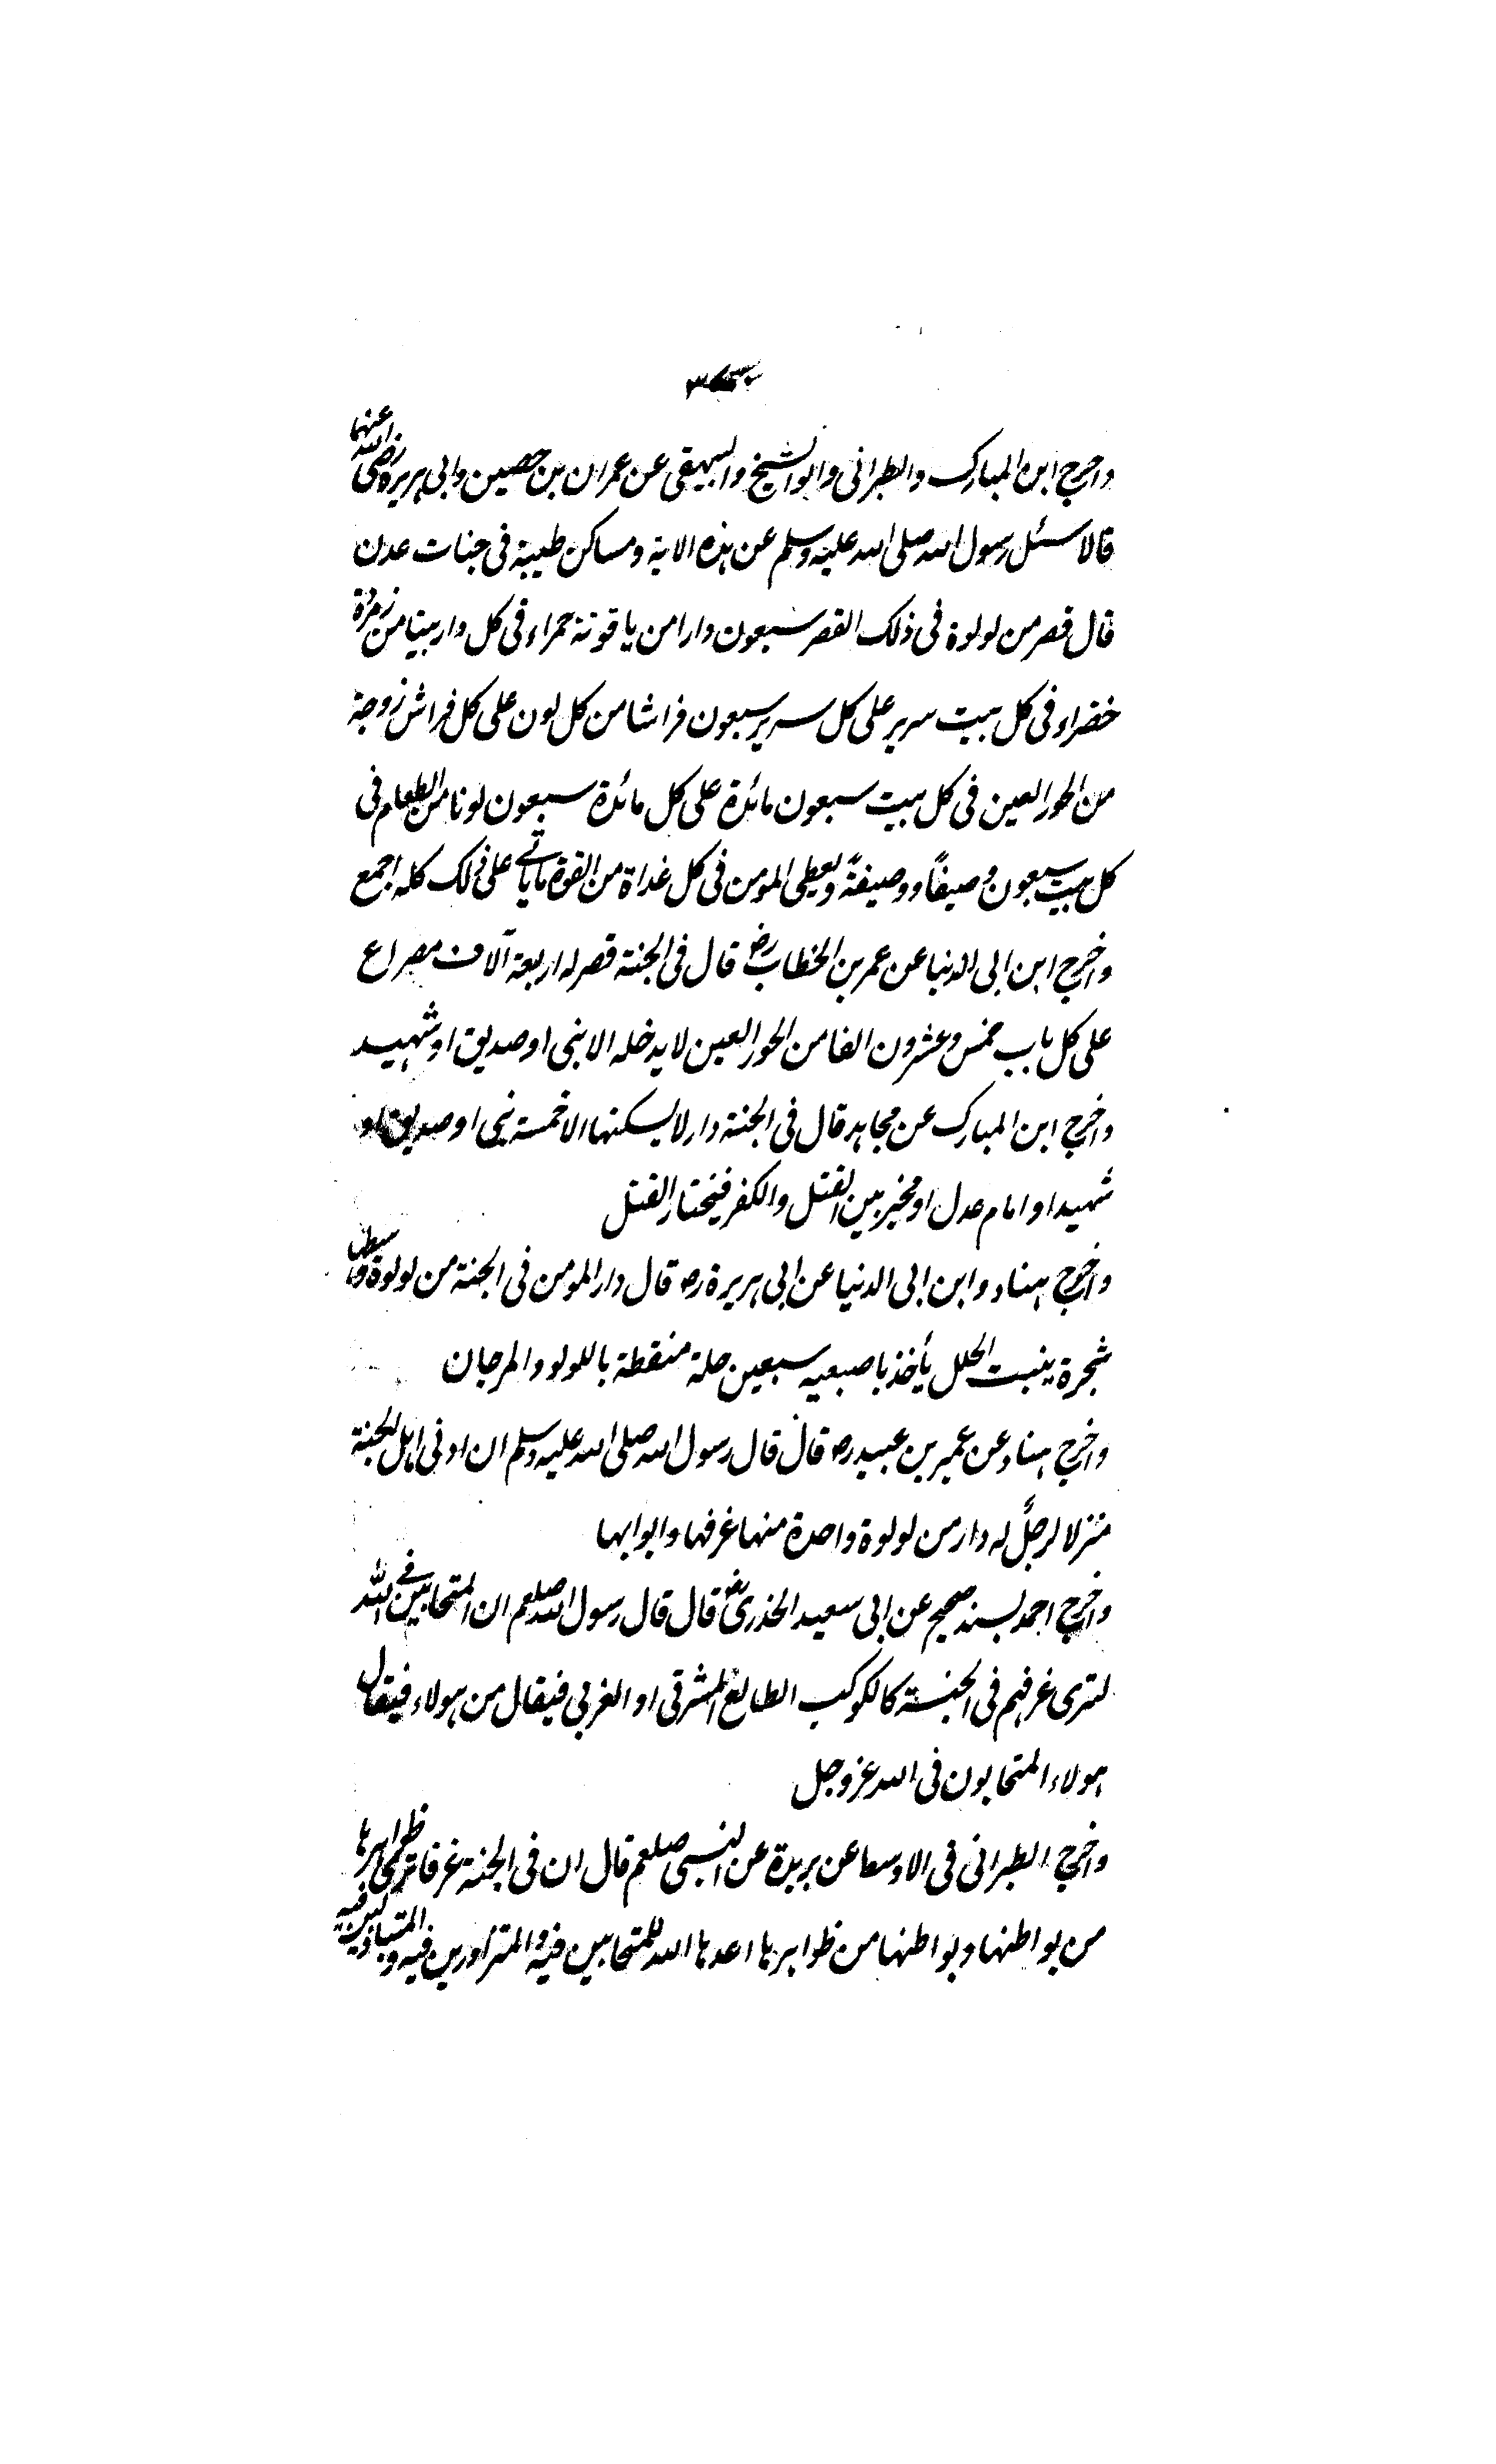 واخرج ابن المبارك والطبرانى وابوالشيخ والبيهقى عن عمران بن حصين وابى هريرة رضى الله عنهما
قالا سئل رسول الله صلى الله عليه وسلم عن هذه الاية ومساكن طيبة فى جنات عدن
قال قصر من لولوة فى ذلك القصر سبعون دارا من ياقوتة حمراء فى كل دار بيتا من زمردة
خضراء فى كل بيت سرير على كل سرير سبعون فراشا من كل لون على كل فراش زوجة
من الحور العين فى كل بيت سبعون مائدة على كل مائدة سبعون لونا من الطعام فى
كل بيت سبعون وصيفاً ووصيفةً ويعطى المومن فى كل غداة من القوة ما ياتى على ذلك كله اجمع
واخرج ابن ابى الدنيا عن عمر بن الخطاب رض قال فى الجنة قصر له اربعة آلاف مصراع
على كل باب خمس وعشرون الفا من الحور العين لا يدخله الا نبى او صديق او شهيد
واخرج ابن المبارك عن مجاهد قال فى الجنة دار لا يسكنها الا خمسة نبى او صديق او
شهيد او امام عدل او مخير بين القتل والكفر فيختار القتل
واخرج هناد وابن ابى الدنيا عن ابى هريرة رض قال دار المومن فى الجنة من لولوة وسطها
شجرة ينبت الحلل يأخذ باصبعيه سبعين حلة منقطة باللولو والمرجان
واخرج هناد عن عمير بن عبيد رض قال قال رسول الله صلى الله عليه وسلم ان ادنى اهل الجنة
منزلا لرجلٌ له دار من لولوة واحدة منها غرفها وابوابها
واخرج احمد بسند صحيح عن ابى سعيد الخدرى رض قال قال رسول الله صلعم ان المتحابين فى الله
لترى غرفهم فى الجنة كالكوكب الطالع المشرقى او الغربى فيقال من هولاء فيقال
هولاء المتحابون فى الله عز وجل
واخرج الطبرانى فى الاوسط عن بريدة عن النبى صلعم قال ان فى الجنة غرفا ترى ظواهرها
من بواطنها وبواطنها من ظواهرها اعدها الله للمتحابين فيه والمتزاورين فيه والمتباذلين فيه